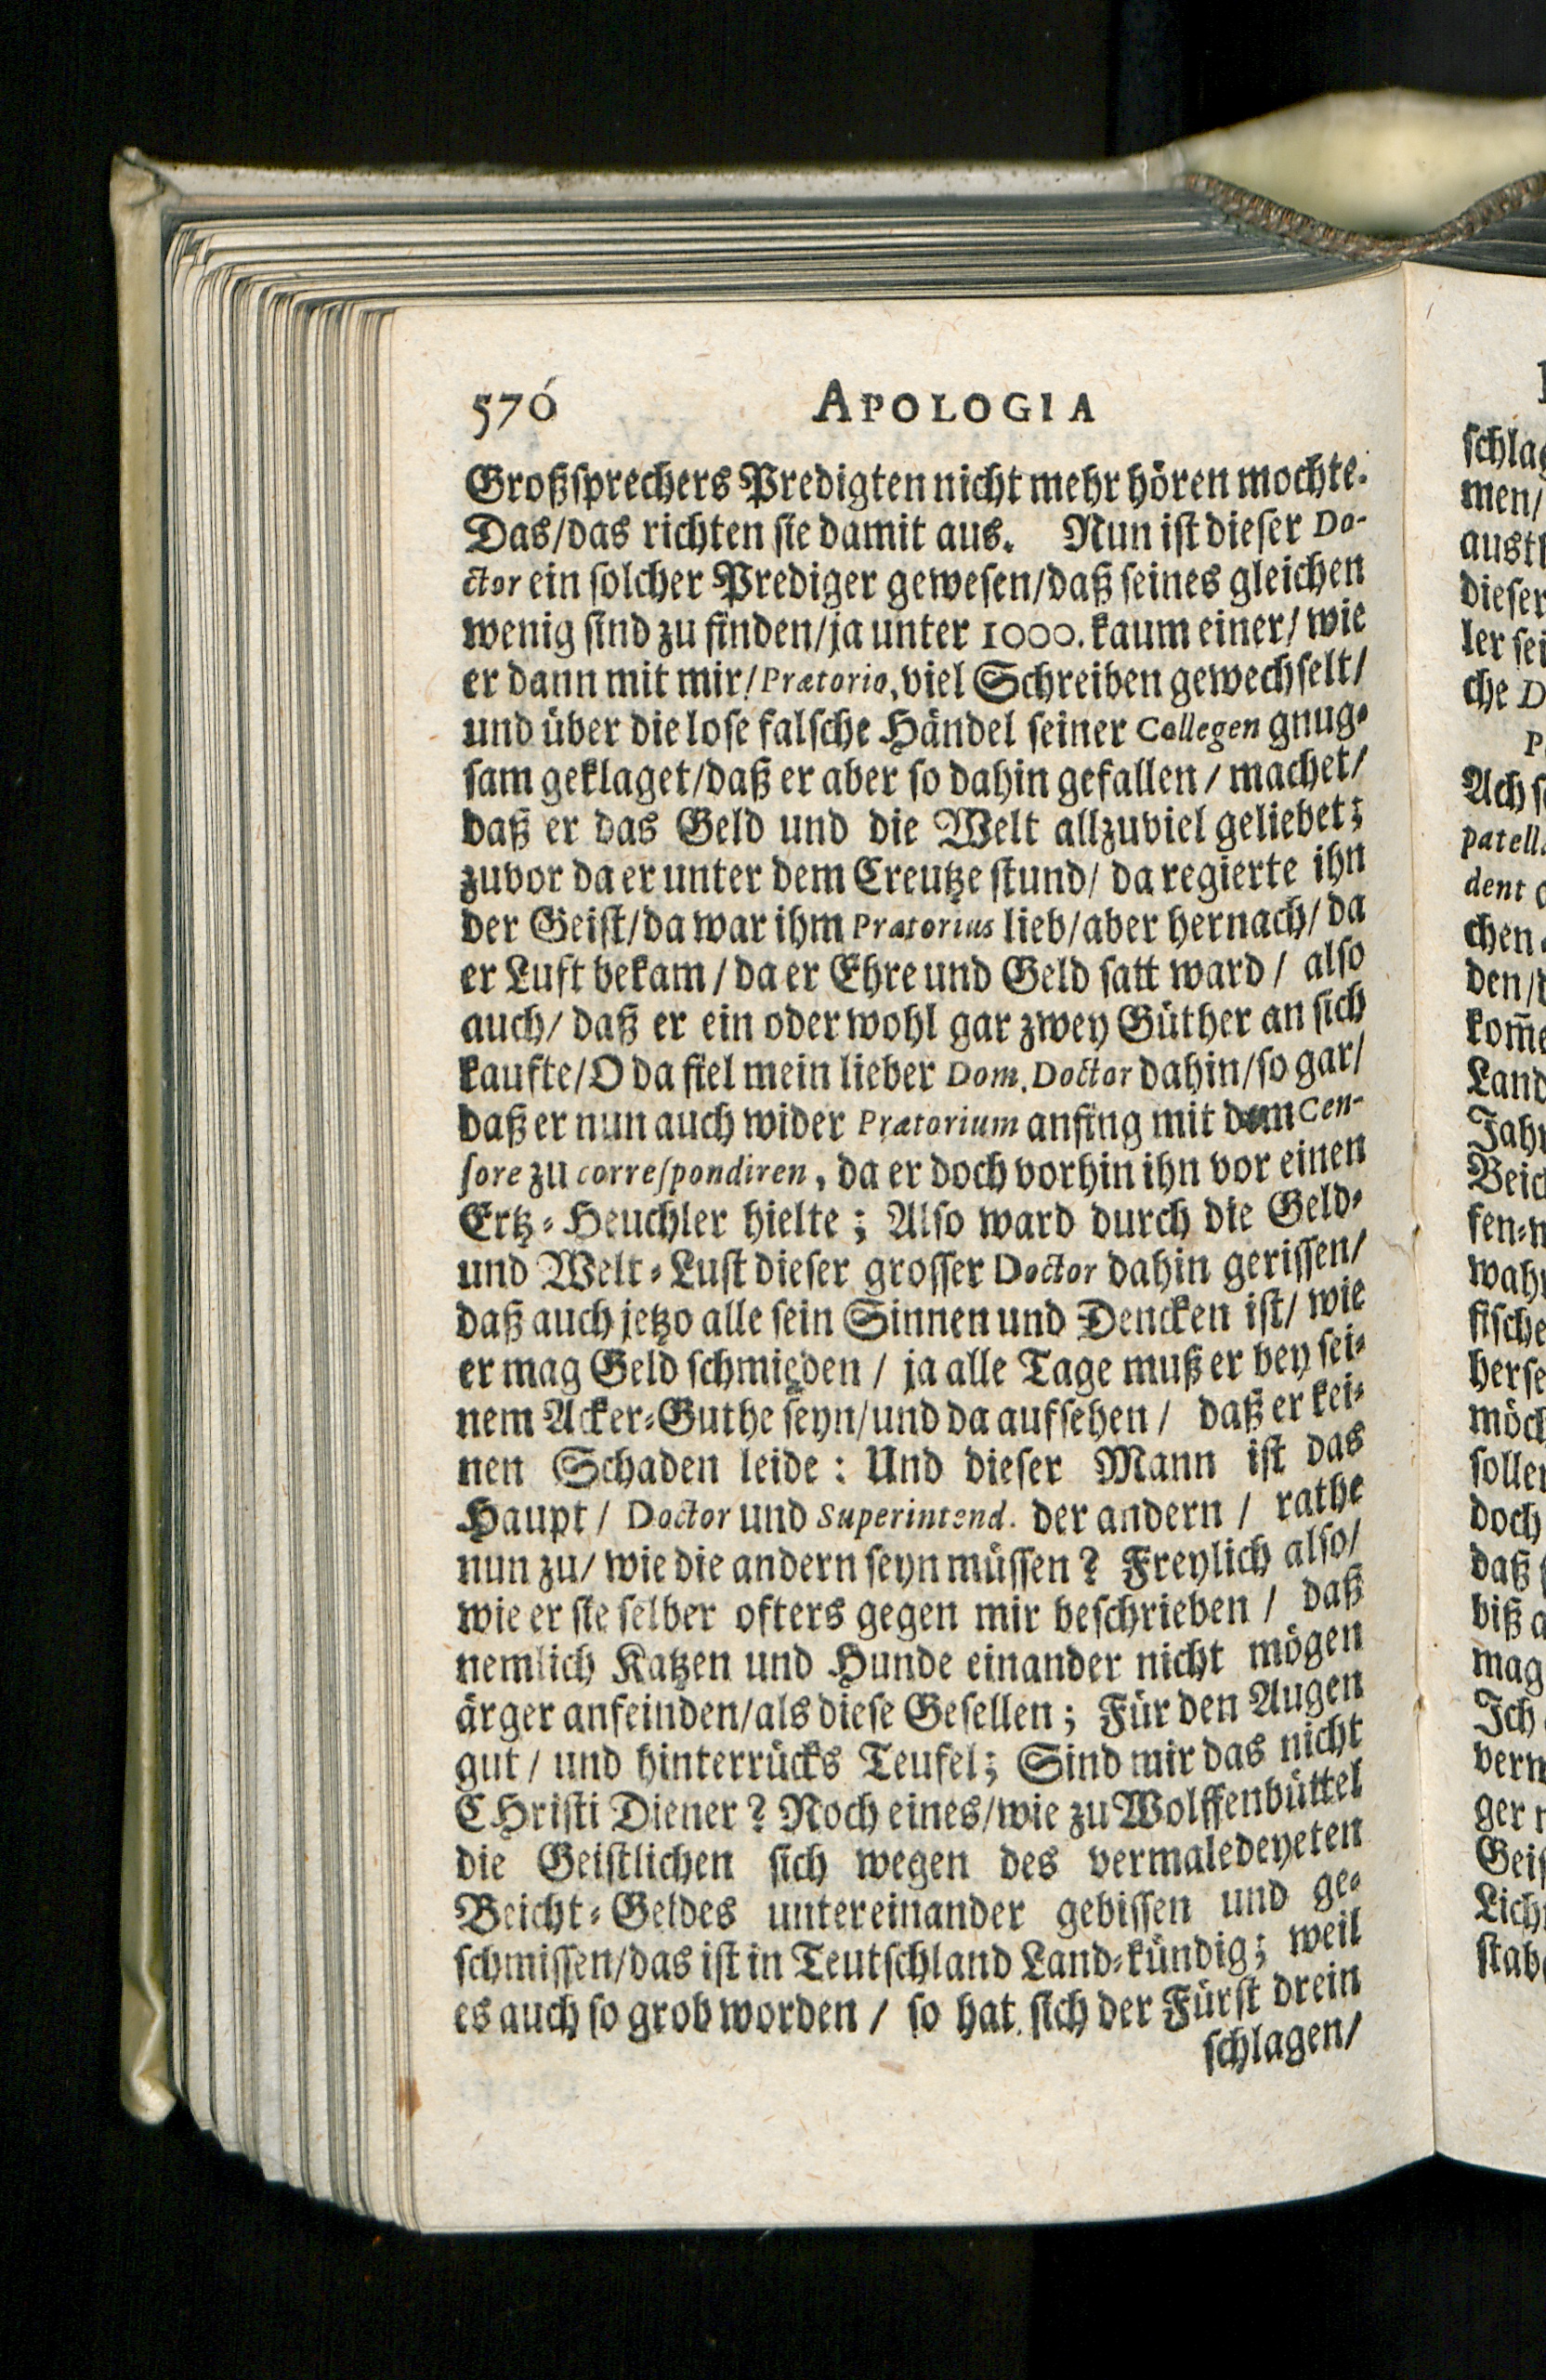 576 APOLOGIA
Großsprechers Predigten nicht mehr hören mochte.
Das/das richten sie damit aus. Nun ist dieser Do-
ctor ein solcher Prediger gewesen/daß seines gleichen
wenig sind zu finden/ja unter 1000. kaum einer/ wie
er dann mit mir/ Prætorio, viel Schreiben gewechselt/
und über die lose falsche Händel seiner Collegen gnug-
sam geklaget/daß er aber so dahin gefallen / machet/
daß er das Geld und die Welt allzuviel geliebet;
zuvor da er unter dem Creutze stund/ da regierte ihn
der Geist/da war ihm Prætorius lieb/aber hernach/ da
er Luft bekam / da er Ehre und Geld satt ward / also
auch/ daß er ein oder wohl gar zwey Güther an sich
kaufte/O da fiel mein lieber Dom. Doctor dahin/so gar/
daß er nun auch wider Prætorium anfing mit dem Cen-
sore zu correspondiren, da er doch vorhin ihn vor einen
Ertz-Heuchler hielte; Also ward durch die Geld-
und Welt-Lust dieser grosser Doctor dahin gerissen/
daß auch jetzo alle sein Sinnen und Dencken ist/ wie
er mag Geld schmieden / ja alle Tage muß er bey sei-
nem Acker-Guthe seyn/und da aufsehen / daß er kei-
nen Schaden leide: Und dieser Mann ist das
Haupt / Doctor und Superintend. der andern / rathe
nun zu/ wie die andern seyn müssen? Freylich also/
wie er sie selber ofters gegen mir beschrieben / daß
nemlich Katzen und Hunde einander nicht mögen
ärger anfeinden/als diese Gesellen; Für den Augen
gut / und hinterrücks Teufel; Sind mir das nicht
CHristi Diener? Noch eines/wie zu Wolffenbüttel
die Geistlichen sich wegen des vermaledeyeten
Beicht-Geldes untereinander gebissen und ge-
schmissen/das ist in Teutschland Land-kündig; weil
es auch so grob worden / so hat sich der Fürst drein
schlagen/